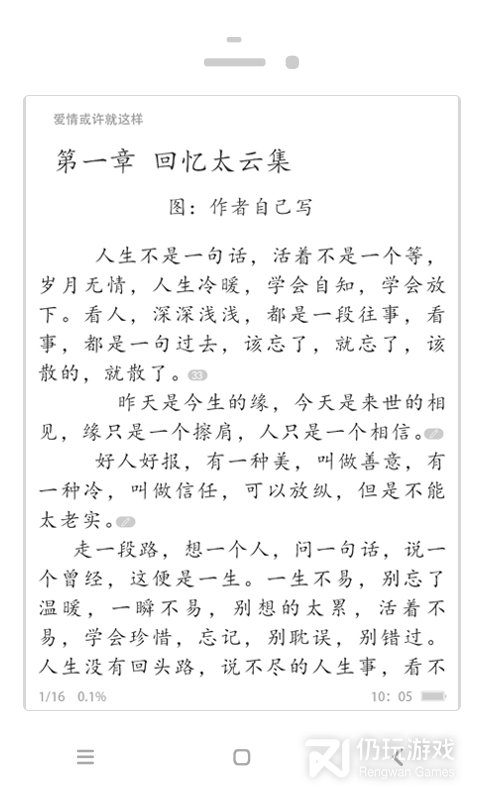 爱情或许就这样
第一章 回忆太云集
图：作者自己写
人生不是一句话，活着不是一个等，
岁月无情，人生冷暖，学会自知，学会放
下。看人，深深浅浅，都是一段往事，看
事，都是一句过去，该忘了，就忘了，该
散的，就散了。33
昨天是今生的缘，今天是来世的相
见，缘只是一个擦肩，人只是一个相信。
好人好报，有一种美，叫做善意，有
一种冷，叫做信任，可以放纵，但是不能
太老实。
走一段路，想一个人，问一句话，说一
个曾经，这便是一生。一生不易，别忘了
温暖，一瞬不易，别想的太累，活着不
易，学会珍惜，忘记，别耽误，别错过。
人生没有回头路，说不尽的人生事，看不
1/16 0.1% 10：05
仍玩游戏
Rengwan Games